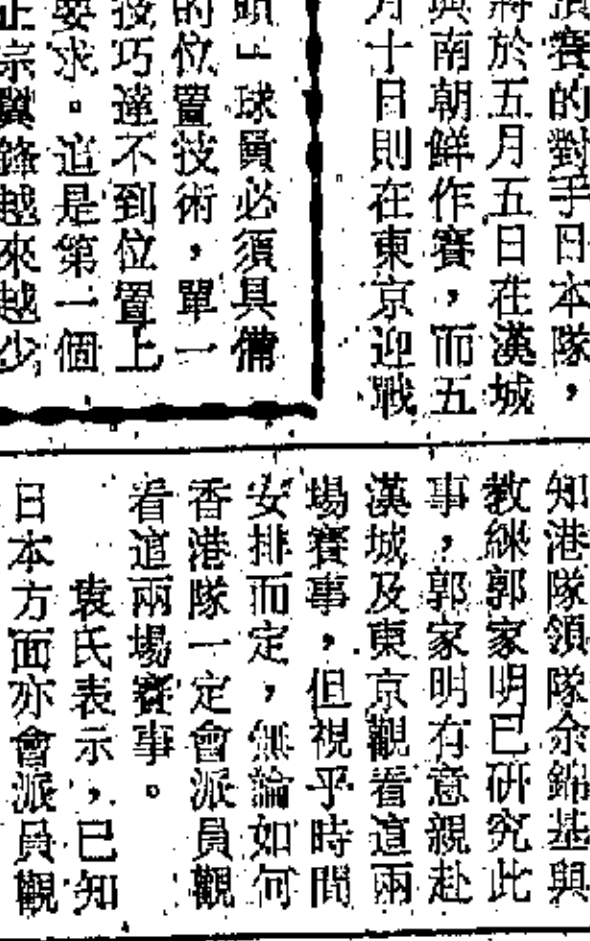 演賽的對手日本隊，
將於五月五日在漢城
與南朝鮮作賽，而五
月十日則在東京迎戰
頭」球員必須具備
的位置技術，單一
技巧達不到位置上
要求。這是第一個
正宗翼鋒越來越少
知港隊領隊余錦基與
教練郭家明已研究此
事，郭家明有意親赴
漢城及東京觀看這兩
場賽事，但視乎時間
安排而定，無論如何
香港隊一定會派員觀
看這兩場賽事。
袁氏表示，已知
日本方面亦會派員觀